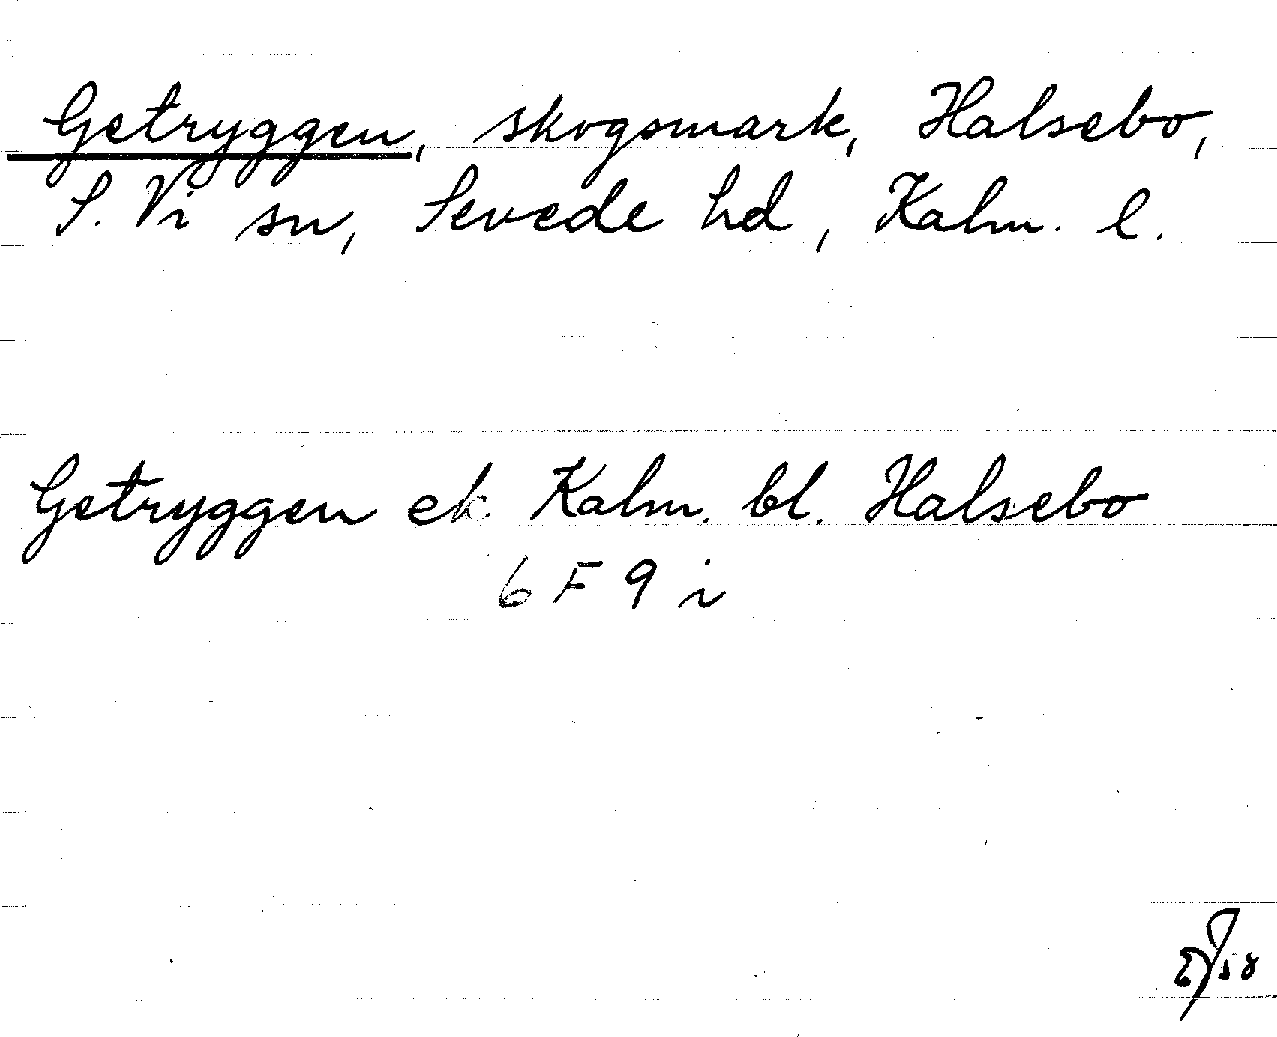 Getryggen, skogsmark, Halsebo,
S. Vi sn, Sevede hd, Kalm. l.
Getryggen ek. Kalm. bl. Halsebo
6 F 9 i